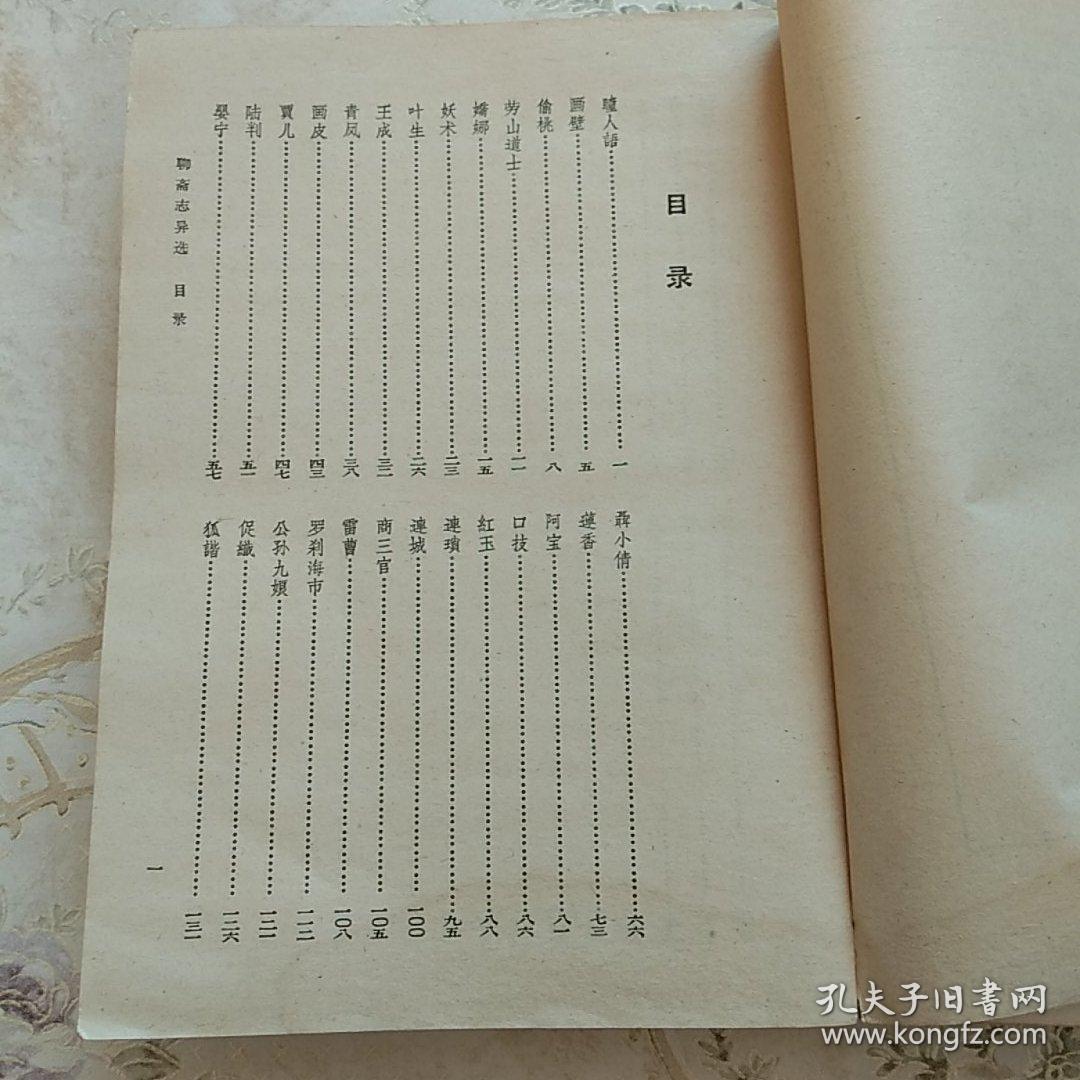 目录
瞳人語……一
画壁……五
偷桃……八
劳山道士……一一
嬌娜……一五
妖术……二三
叶生……二六
王成……三二
青凤……三八
画皮……四三
賈儿……四七
陆判……五一
嬰宁……五七
聶小倩……六六
蓮香……七三
阿宝……八一
口技……八六
紅玉……八八
連瑣……九五
連城……一〇〇
商三官……一〇五
雷曹……一〇八
罗刹海市……一一二
公孙九娘……一二一
促織……一二六
狐諧……一三一
聊斋志异选 目录
一
孔夫子旧書网
www.kongfz.com